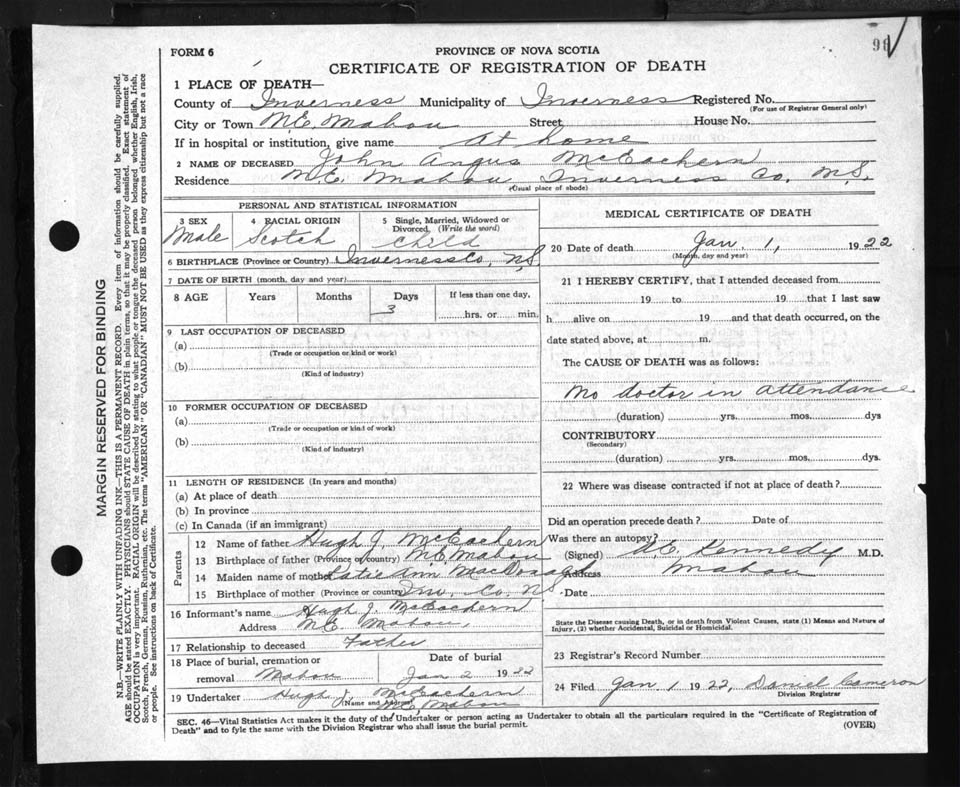 96
FORM 6
PROVINCE OF NOVA SCOTIA
CERTIFICATE OF REGISTRATION OF DEATH
1 PLACE OF DEATH—
County of Inverness Municipality of Inverness Registered No.
(For use of Registrar General only)
City or Town N.E. Mabou Street House No.
If in hospital or institution, give name At home
2 NAME OF DECEASED John Angus McEachern
Residence N.E. Mabou Inverness Co. N.S.
(Usual place of abode)
PERSONAL AND STATISTICAL INFORMATION
3 SEX
Male
4 RACIAL ORIGIN
Scotch
5 Single, Married, Widowed or
Divorced, (Write the word)
Child
6 BIRTHPLACE (Province or Country) Inverness Co, N.S.
7 DATE OF BIRTH (month, day and year)
8 AGE Years Months Days If less than one day,
3 hrs. or min.
9 LAST OCCUPATION OF DECEASED
(a)
(Trade or occupation or kind or work)
(b)
(Kind of industry)
10 FORMER OCCUPATION OF DECEASED
(a)
(Trade or occupation or kind of work)
(b)
(Kind of industry)
11 LENGTH OF RESIDENCE (In years and months)
(a) At place of death
(b) In province
(c) In Canada (if an immigrant)
Parents
12 Name of father Hugh J. McEachern
13 Birthplace of father (Province or country) N.E. Mabou
14 Maiden name of mother Katie Ann MacDonald
15 Birthplace of mother (Province or country) Inv. Co. N.S.
16 Informant's name Hugh J. McEachern
Address N.E. Mabou,
17 Relationship to deceased Father
18 Place of burial, cremation or
removal Mabou
Date of burial
Jan 2 1922
19 Undertaker Hugh J. McEachern
(Name and Address) N.E. Mabou
MEDICAL CERTIFICATE OF DEATH
20 Date of death Jan. 1, 1922
(Month, day and year)
21 I HEREBY CERTIFY, that I attended deceased from
19 to 19 that I last saw
h alive on 19 and that death occurred, on the
date stated above, at m.
The CAUSE OF DEATH was as follows:
No doctor in attendance
(duration) yrs. mos. dys
CONTRIBUTORY
(Secondary)
(duration) yrs. mos. dys.
22 Where was disease contracted if not at place of death?
Did an operation precede death? Date of
Was there an autopsy?
(Signed) A.E. Kennedy M.D.
Address Mabou
Date
State the Disease causing Death, or in death from Violent Causes, state (1) Means and Nature of
Injury, (2) whether Accidental, Suicidal or Homicidal.
23 Registrar's Record Number
24 Filed Jan 1 1922, Daniel Cameron
Division Registrar
SEC. 46—Vital Statistics Act makes it the duty of the Undertaker or person acting as Undertaker to obtain all the particulars required in the "Certificate of Registration of
Death" and to fyle the same with the Division Registrar who shall issue the burial permit.
(OVER)
MARGIN RESERVED FOR BINDING
N.B.—WRITE PLAINLY WITH UNFADING INK—THIS IS A PERMANENT RECORD. Every item of information should be carefully supplied.
AGE should be stated EXACTLY. PHYSICIANS should STATE CAUSE OF DEATH in plain terms, so that it may be properly classified. Exact statement of
OCCUPATION is very important. RACIAL ORIGIN will be described by stating to what people or tongue the deceased person belonged whether English, Irish,
Scotch, French, German, Russian, Ruthenian, etc. The terms "AMERICAN" OR "CANADIAN" MUST NOT BE USED as they express citizenship but not a race
or people. See instructions on back of Certificate.